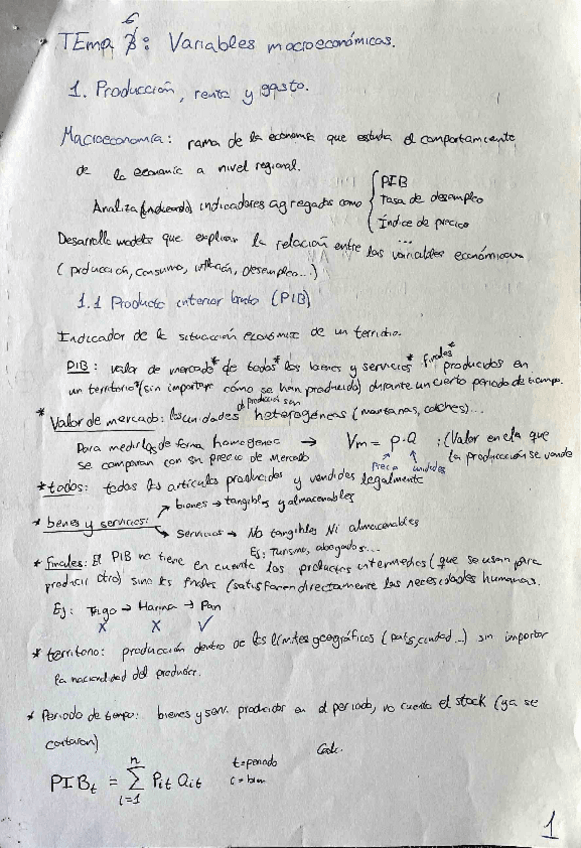 6
TEma 8: Variables macroeconómicas.
1. Producción, renta y gasto.
Macroeconomía: rama de la economía que estudia el comportamiento
de la economía a nivel regional.
Analiza indicadores agregados como
PIB
Tasa de desempleo
Índice de precios
...
Desarrolla modelos que explican la relación entre las variables económicas
(producción, consumo, inflación, desempleo...)
1.1 Producto interior bruto (PIB)
Indicador de la situación económica de un territorio.
PIB: valor de mercado* de todos* los bienes y servicios* finales* producidos en
un territorio* (sin importar cómo se han producido) durante un cierto periodo de tiempo.
* Valor de mercado: las unidades de producción son heterogéneas (manzanas, coches)...
Para medirlas de forma homogenea → Vm = p·Q : (Valor en el que
se comparan con su precio de mercado Precio unidades la producción se vende
* todos: todos los artículos producidos y vendidos legalmente
* bienes y servicios: bienes → tangibles y almacenables
Servicios → No tangibles Ni almacenables
Ej: Turismo, abogados...
* finales: El PIB no tiene en cuenta los productos intermedios (que se usan para
producir otro) sino los finales (satisfacen directamente las necesidades humanas.
Ej: Trigo → Harina → Pan
X X ✓
* territorio: producción dentro de los límites geográficos (país, ciudad...) sin importar
la nacionalidad del productor.
* Periodo de tiempo: bienes y serv. producidos en el periodo, no cuenta el stock (ya se
contaron)
PIBt = n Σ i=1 Pit Qit
t = periodo
i = bien
1